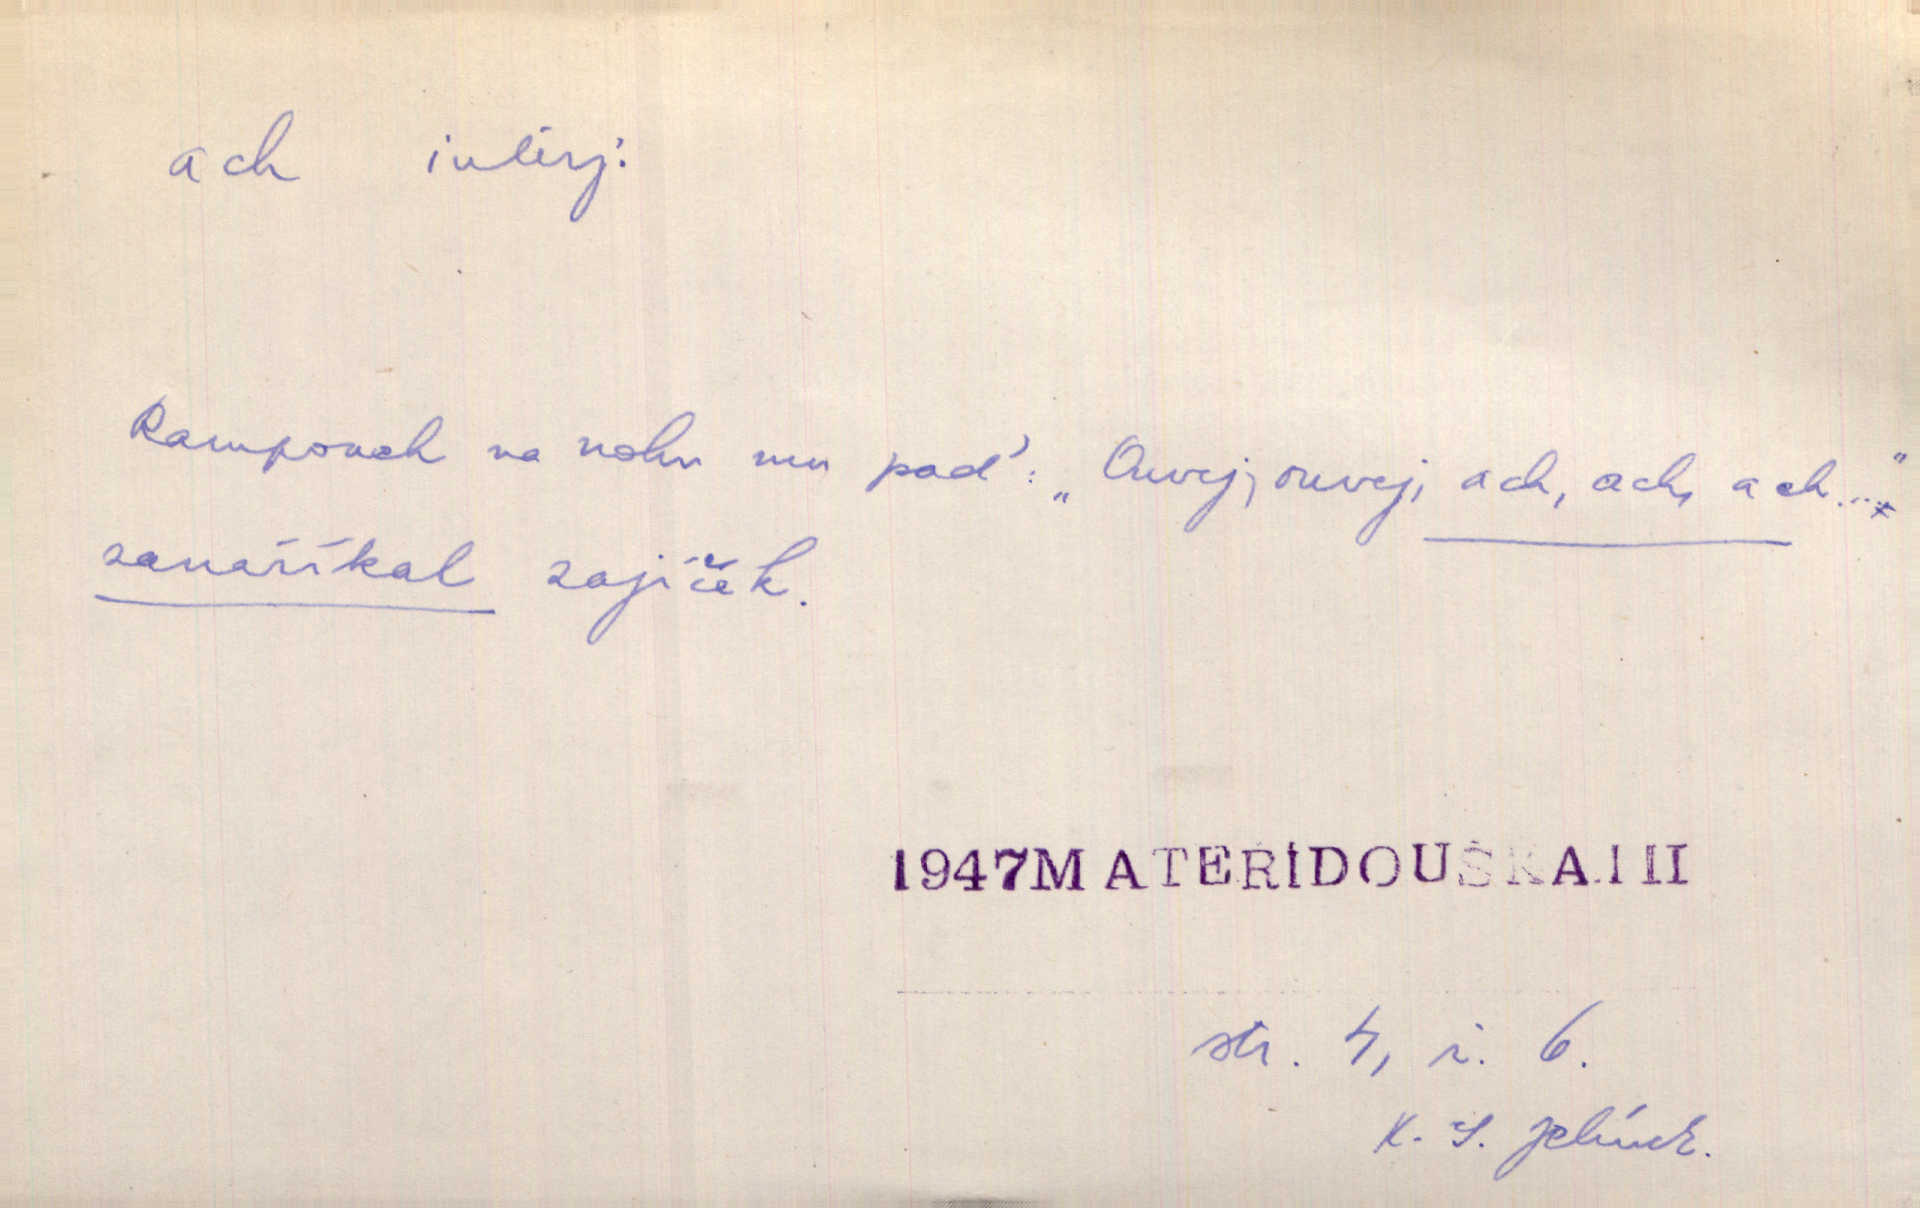 ach interj.
Rampouch na nohu mu pad': „Ouvej, ouvej, ach, ach, ach...."
zanaříkal zajíček.
1947 MATEŘÍDOUŠKA III
str. 4, ř. 6.
K. S. Jelínek.